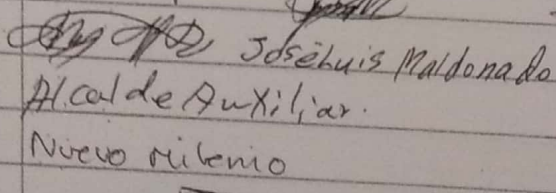 José Luis Maldonado
Alcalde Auxiliar.
Nuevo Milenio